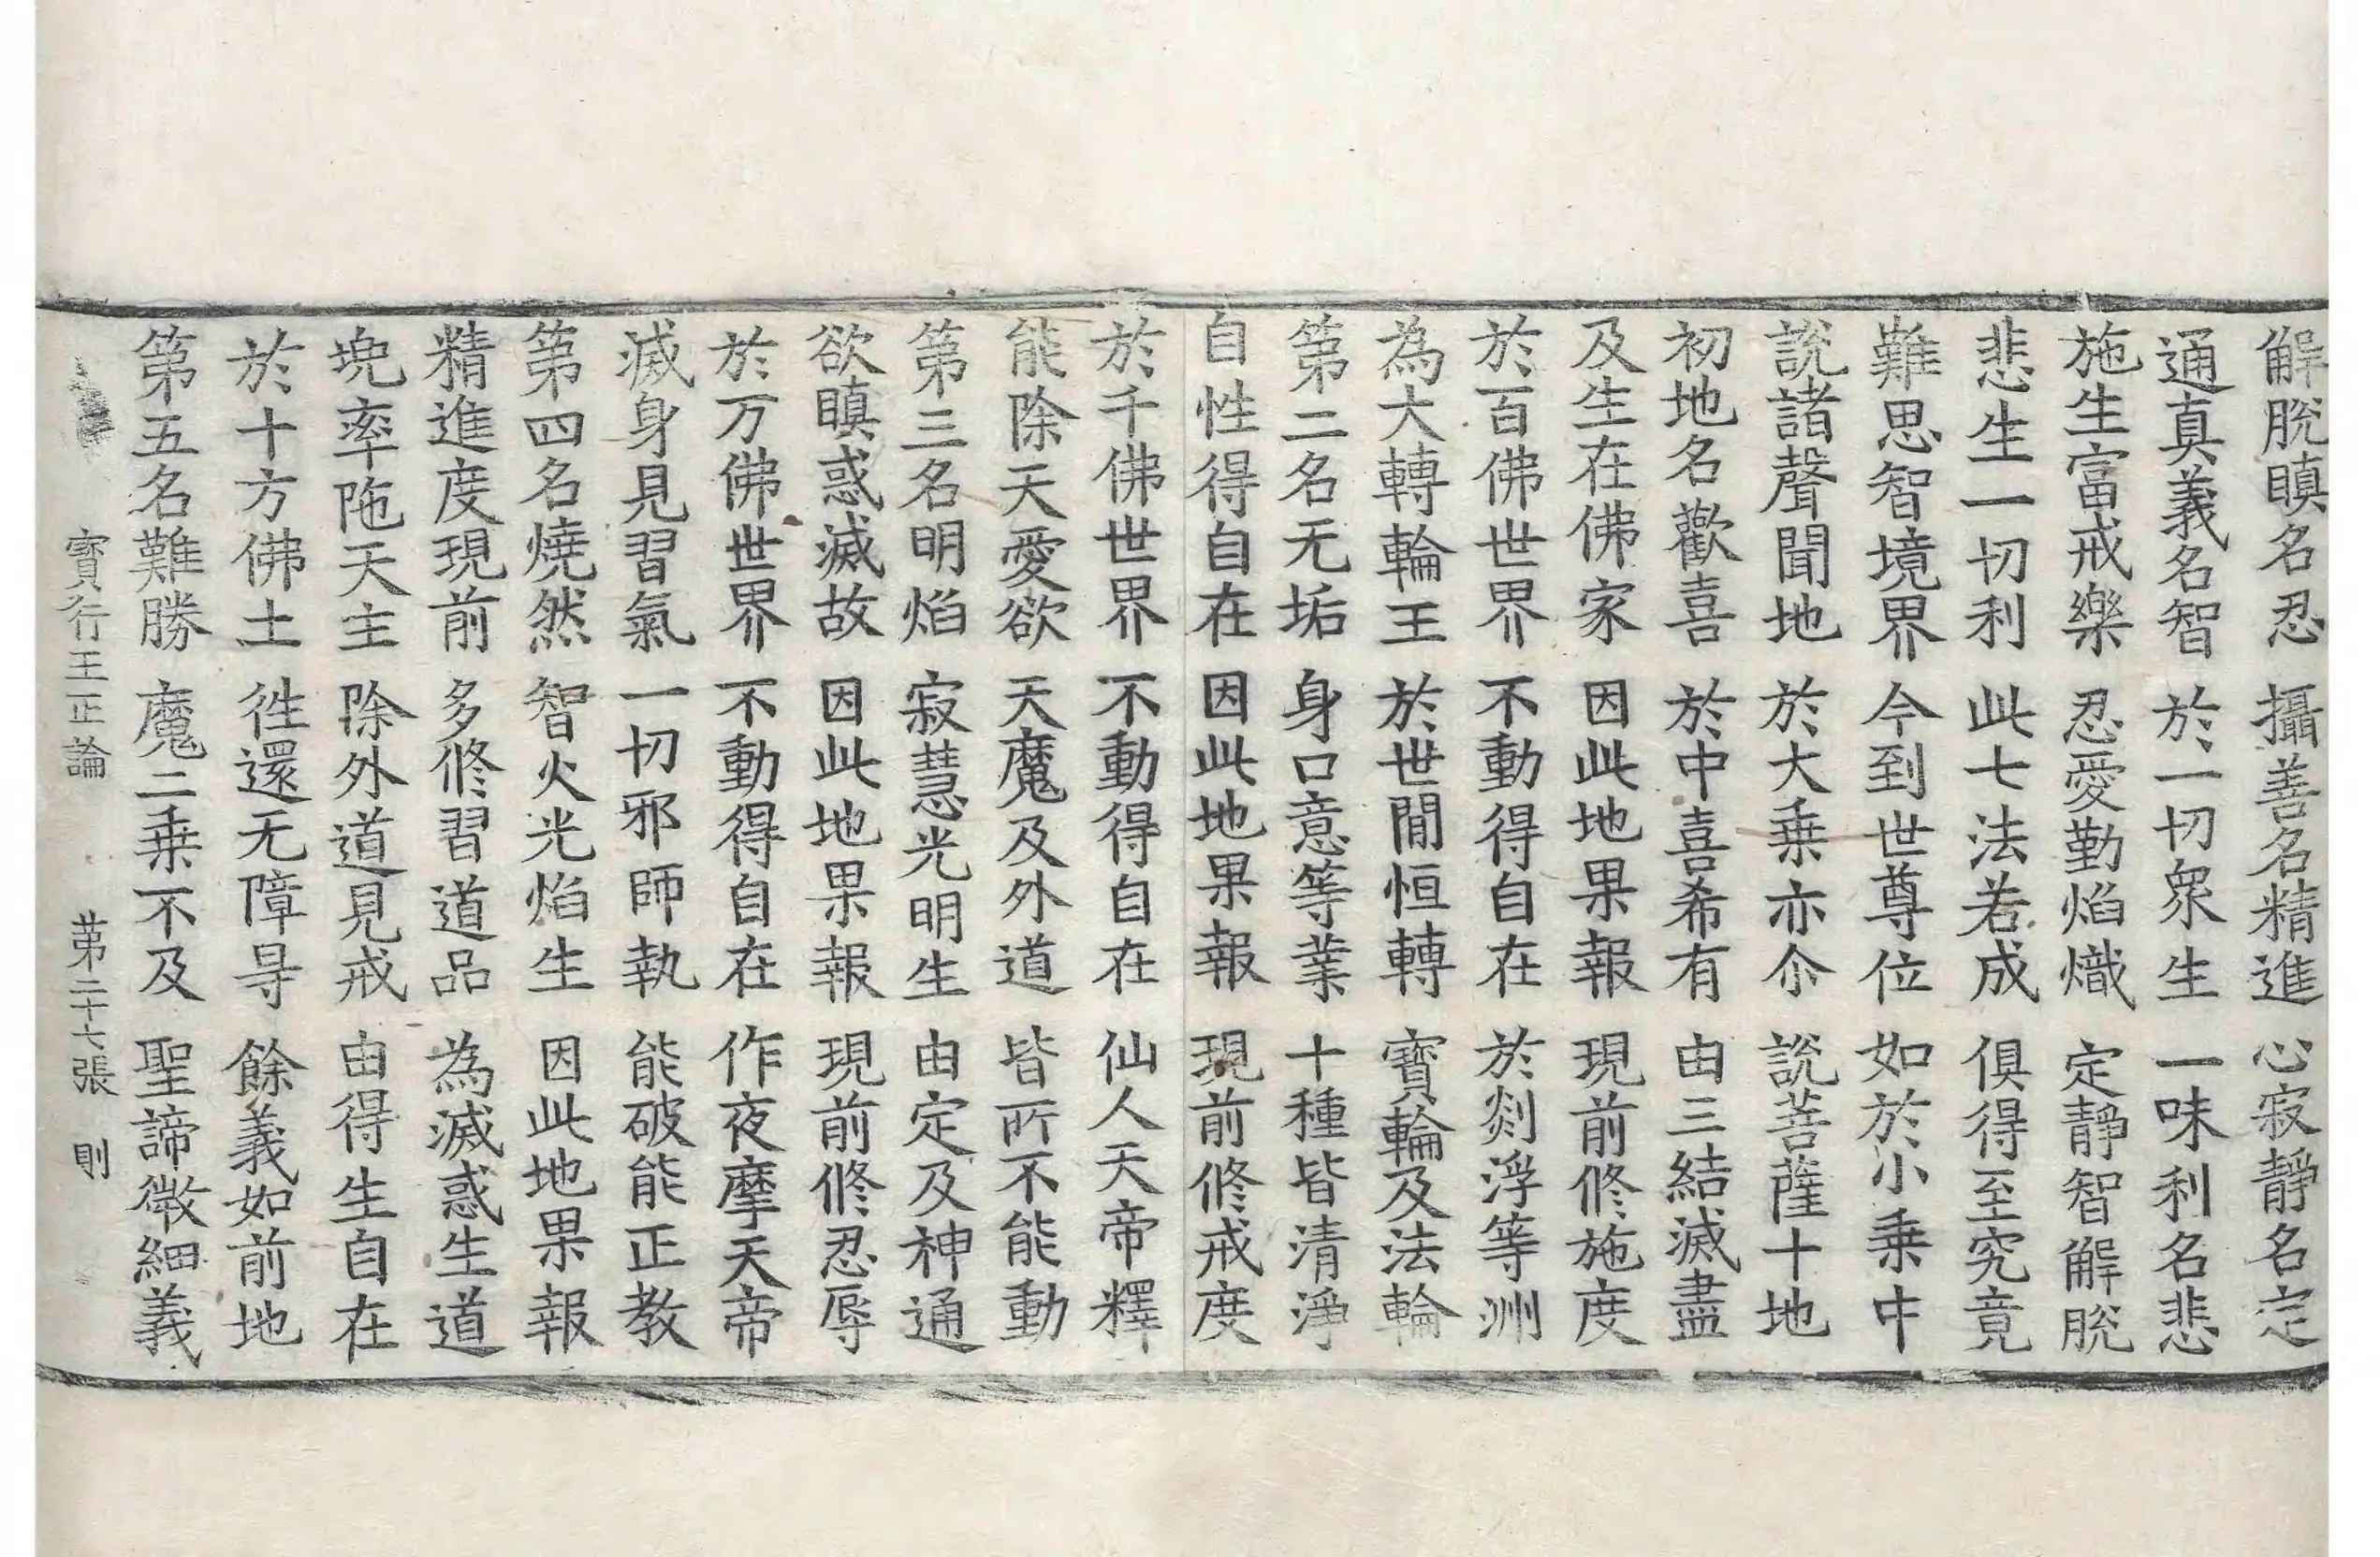 解脫瞋名忍 攝善名精進 心寂靜名定
通真義名智 於一切衆生 一味利名悲
施生富戒樂 忍愛勤焰熾 定靜智解脫
悲生一切利 此七法若成 俱得至究竟
難思智境界 今到世尊位 如於小乗中
說諸聲聞地 於大乗亦尒 說菩薩十地
初地名歡喜 於中喜希有 由三結滅盡
及生在佛家 因此地果報 現前修施度
於百佛世界 不動得自在 於剡浮等洲
為大轉輪王 於世閒恒轉 寶輪及法輪
第二名无垢 身口意等業 十種皆清淨
自性得自在 因此地果報 現前修戒度
於千佛世界 不動得自在 仙人天帝釋
能除天愛欲 天魔及外道 皆所不能動
第三名明焰 寂慧光明生 由定及神通
欲瞋惑滅故 因此地果報 現前修忍辱
於万佛世界 不動得自在 作夜摩天帝
滅身見習氣 一切邪師執 能破能正教
第四名燒然 智火光焰生 因此地果報
精進度現前 多修習道品 為滅惑生道
兠率陁天主 除外道見戒 由得生自在
於十方佛土 徃還无障㝵 餘義如前地
第五名難勝 魔二乗不及 聖諦微細義
寶行王正論 苐二十七張 則